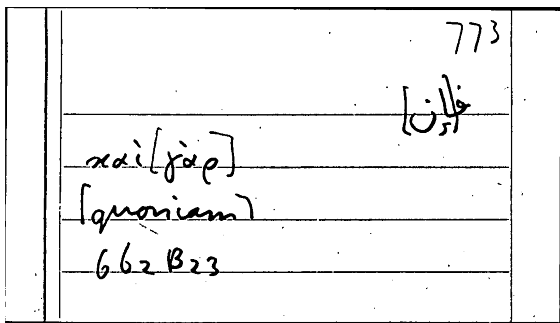 773
καὶ [γὰρ]
[quoniam]
662 B23